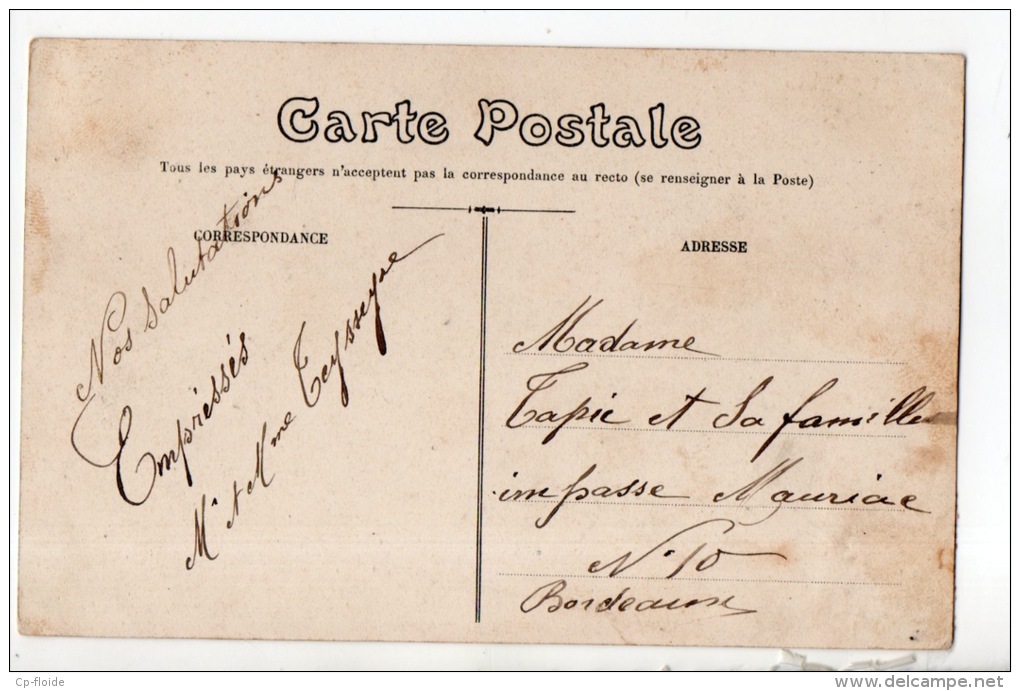 Carte Postale
Tous les pays étrangers n'acceptent pas la correspondance au recto (se renseigner à la Poste)
CORRESPONDANCE
Nos Salutations
Empréssés
Mr et Mme Teysseyre
ADRESSE
Madame
Tapie et Sa famille
impasse Mauriac
N° 10
Bordeaux
Cp-floide
delcampe.net